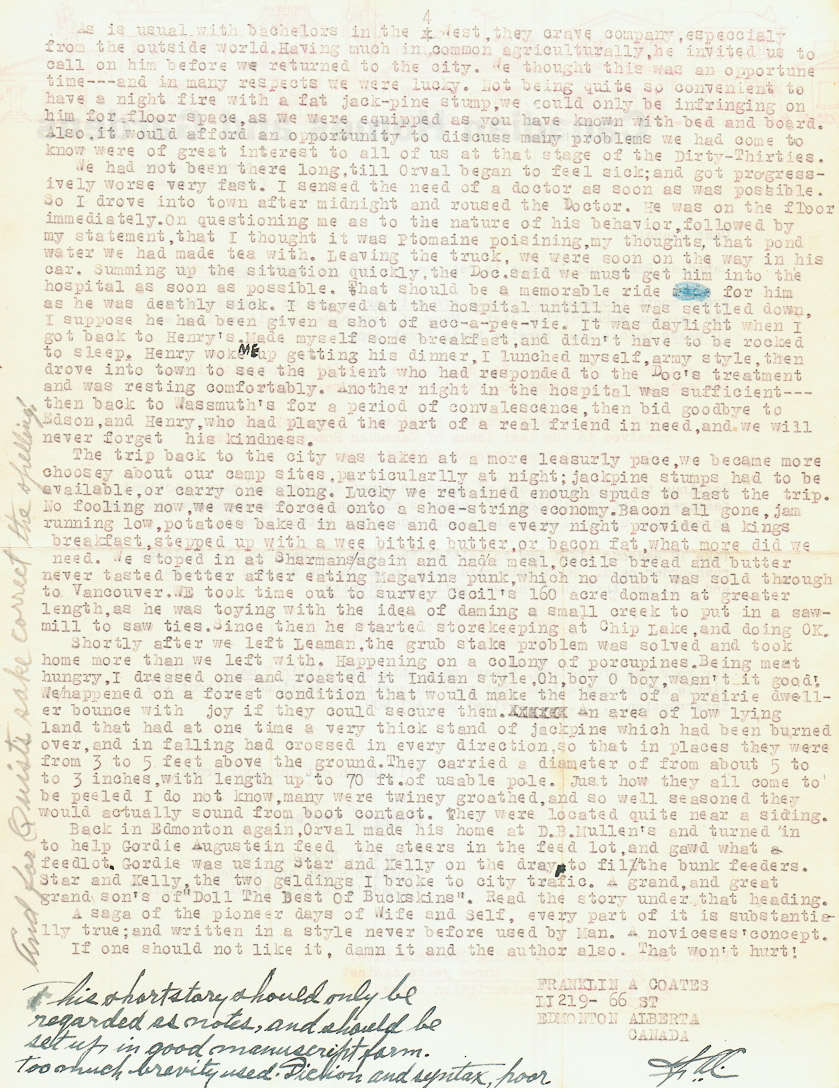 4
As is usual with bachelors in the x West,they crave company,especcialy
from the outside world.Having much in common agriculturally,he invited us to
call on him before we returned to the city. We thought this was an opportune
time---and in many respects we were lucky. Not being quite so convenient to
have a night fire with a fat jack-pine stump,we could only be infringing on
him for floor space,as we were equipped as you have known with bed and board.
Also,it would afford an opportunity to discuss many problems we had come to
know were of great interest to all of us at that stage of the Dirty-Thirties.
We had not been there long,till Orval began to feel sick;and got progress-
ively worse very fast. I sensed the need of a doctor as soon as was possible.
So I drove into town after midnight and roused the Doctor. He was on the floor
immediately.On questioning me as to the nature of his behavior,followed by
my statement,that I thought it was Ptomaine poisining,my thoughts,that pond
water we had made tea with. Leaving the truck, we were soon on the way in his
car. Summing up the situation quickly,the Doc.said we must get him into the
hospital as soon as possible. That should be a memorable ride for him
as he was deathly sick. I stayed at the hospital untill he was settled down,
I suppose he had been given a shot of acc-a-pee-vie. It was daylight when I
got back to Henry's.Made myself some breakfast,and didn't have to be rocked
to sleep. Henry woke ME up getting his dinner,I lunched myself,army style,then
drove into town to see the patient who had responded to the Doc's treatment
and was resting comfortably. Another night in the hospital was sufficient---
then back to Wassmuth's for a period of convalescence,then bid goodbye to
Edson,and Henry,who had played the part of a real friend in need,and we will
never forget his kindness.
The trip back to the city was taken at a more leasurly pace,we became more
choosey about our camp sites,particularlly at night;jackpine stumps had to be
available,or carry one along. Lucky we retained enough spuds to last the trip.
No fooling now,we were forced onto a shoe-string economy.Bacon all gone,jam
running low,potatoes baked in ashes and coals every night provided a kings
breakfast,stepped up with a wee bittie butter,or bacon fat,what more did we
need. We stoped in at Sharmans/again and had/a meal,Cecils bread and butter
never tasted better after eating Magavins punk,which no doubt was sold through
to Vancouver.WE took time out to survey Cecil's 160 acre domain at greater
length,as he was toying with the idea of daming a small creek to put in a saw-
mill to saw ties.Since then he started storekeeping at Chip Lake,and doing OK.
Shortly after we left Leaman,the grub stake problem was solved and took
home more than we left with. Happening on a colony of porcupines.Being meat
hungry,I dressed one and roasted it Indian style,Oh,boy O boy,wasn't it good!
We/happened on a forest condition that would make the heart of a prairie dwell-
er bounce with joy if they could secure them. An area of low lying
land that had at one time a very thick stand of jackpine which had been burned
over,and in falling had crossed in every direction,so that in places they were
from 3 to 5 feet above the ground.They carried a diameter of from about 5 to
to 3 inches,with length up to 70 ft.of usable pole. Just how they all come to
be peeled I do not know,many were twiney groathed,and so well seasoned they
would actually sound from boot contact. They were located quite near a siding.
Back in Edmonton again,Orval made his home at D.B.Mullen's and turned in
to help Gordie Augustein feed the steers in the feed lot,and gawd what a
feedlot. Gordie was using Star and Kelly on the dray to fill/the bunk feeders.
Star and Kelly,the two geldings I broke to city trafic. A grand,and great
grand son's of"Doll The Best Of Buckskins". Read the story under that heading.
A saga of the pioneer days of Wife and Self, every part of it is substantia-
lly true;and written in a style never before used by Man. A noviceses'concept.
If one should not like it, damn it and the author also. That won't hurt!
FRANKLIN A COATES
II219- 66 ST
EDMONTON ALBERTA
CANADA
This short story should only be
regarded as notes, and should be
set up in good manuscript form.
Too much brevity used. Diction and syntax, poor
And for Quists sake correct the spelling!